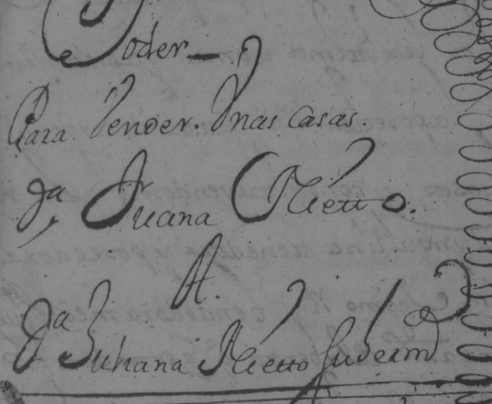 Poder
Para Vender. Vnas casas
Da Juana Nietto.
A.
Da Juliana Nietto